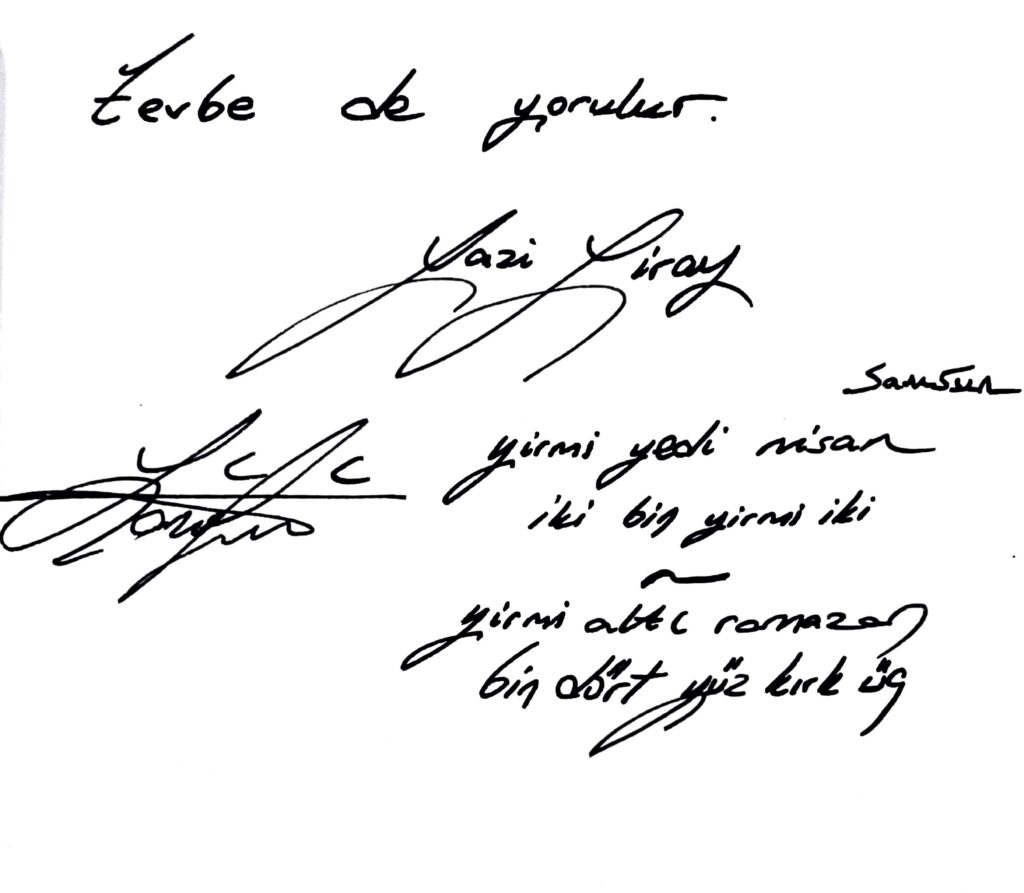 tevbe de yorulur.
Gazi Giray
Samsun
yirmi yedi nisan
iki bin yirmi iki
~
yirmi altı ramazan
bin dört yüz kırk üç